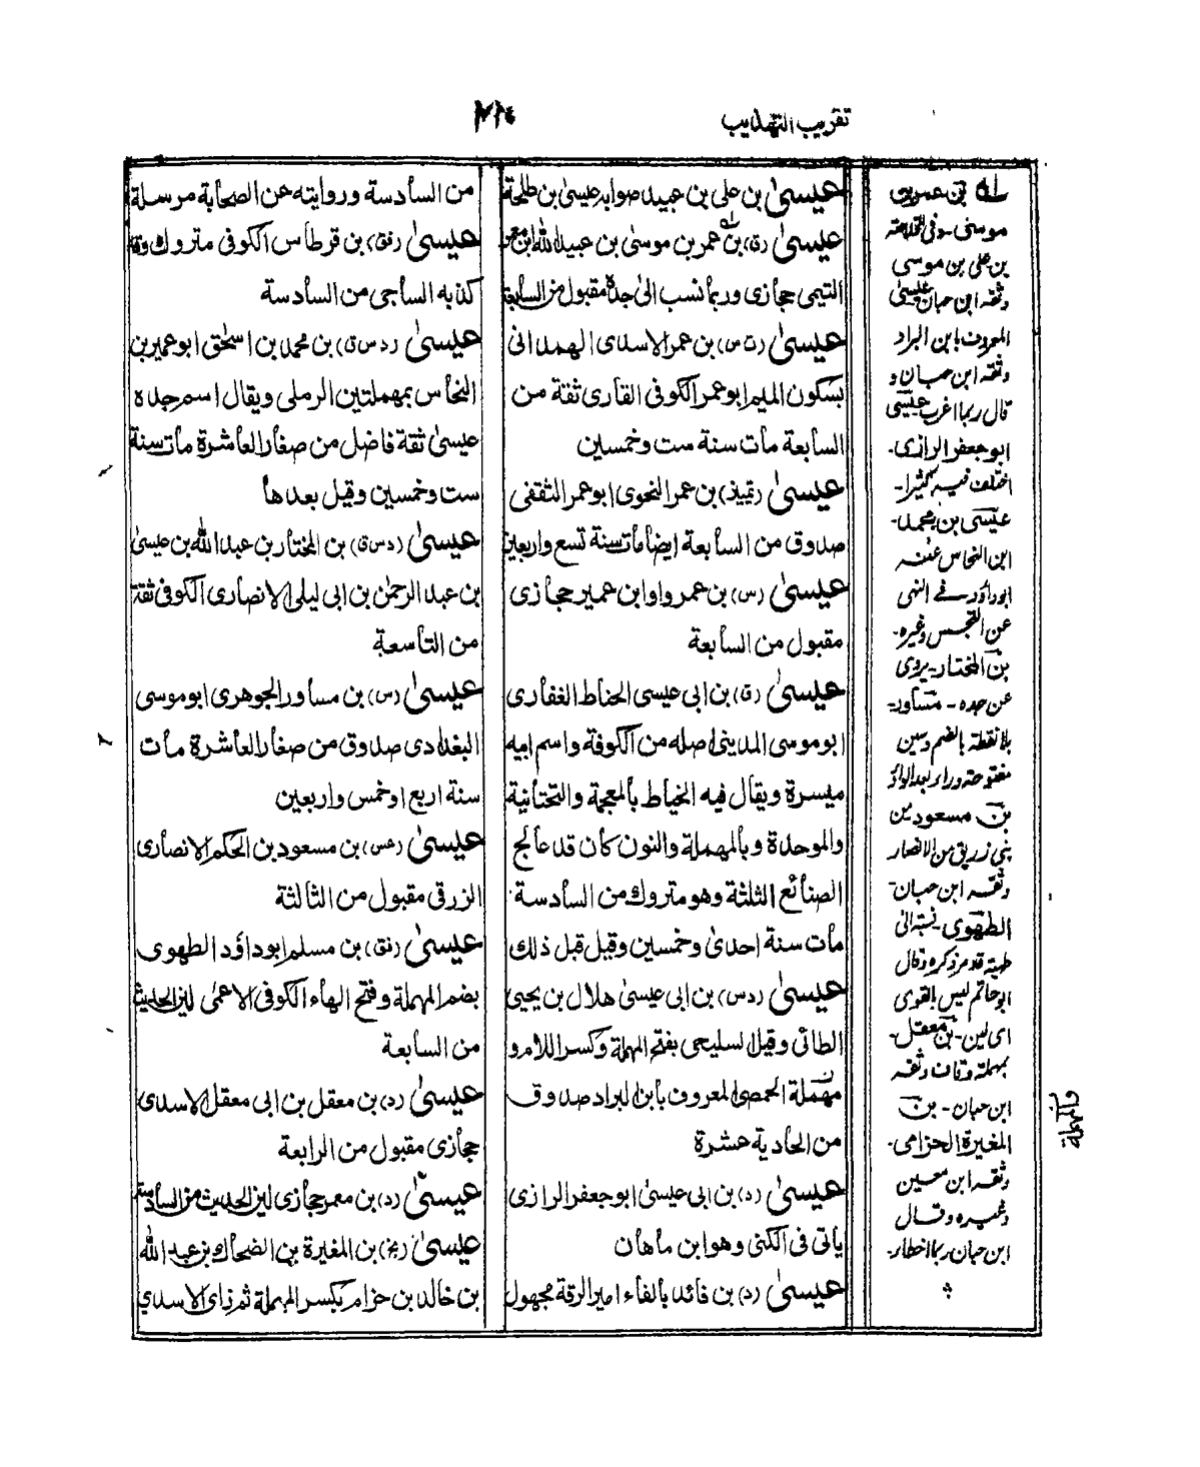 تقريب التهذيب
عيسىٰ بن على بن عبيد صوابه عيسىٰ بن طلحة
عيسىٰ (ق) بن عمر بن موسىٰ بن عبيد الله ابن معمر
التيمى حجازى وربما نسب الىٰ جده مقبول من السابعة
عيسىٰ (ت س) بن عمر الاسدى الهمدانى
بسكون الميم ابو عمر الكوفى القارى ثقة من
السابعة مات سنة ست وخمسين
عيسىٰ (تميز) بن عمر النحوى ابو عمر الثقفى
صدوق من السابعة ايضا مات سنة تسع واربعين
عيسىٰ (س) بن عمرو او ابن عمير حجازى
مقبول من السابعة
عيسىٰ (ق) بن ابى عيسى الحناط الغفارى
ابو موسى المدينى اصله من الكوفة واسم ابيه
ميسرة ويقال فيه الخياط بالمعجمة والتحتانية
والموحدة وبالمهملة والنون كان قد عالج
الصنائع الثلثة وهو متروك من السادسة
مات سنة احدىٰ وخمسين وقيل قبل ذلك
عيسىٰ (د س) بن ابى عيسىٰ هلال بن يحيى
الطائى وقيل السليحى بفتح المهملة وكسر اللام و
مهملة الحمصى المعروف بابن البراد صدوق
من الحادية عشرة
عيسىٰ (د) بن ابى عيسىٰ ابو جعفر الرازى
ياتى فى الكنى وهو ابن ماهان
عيسىٰ (د) بن فائد بالفاء امير الرقة مجهول
من السادسة وروايته عن الصحابة مرسلة
عيسىٰ (فق) بن قرطاس الكوفى متروك وقد
كذبه الساجى من السادسة
عيسىٰ (د س ق) بن محمد بن اسحٰق ابو عمير بن
النحاس بمهملتين الرملى ويقال اسم جده
عيسىٰ ثقة فاضل من صغار العاشرة مات سنة
ست وخمسين وقيل بعدها
عيسىٰ (د س ق) بن المختار بن عبد الله بن عيسىٰ
بن عبد الرحمٰن بن ابى ليلى الانصارى الكوفى ثقة
من التاسعة
عيسىٰ (س) بن مساور الجوهرى ابو موسى
البغدادى صدوق من صغار العاشرة مات
سنة اربع او خمس واربعين
عيسىٰ (عس) بن مسعود بن الحكم الانصارى
الزرقى مقبول من الثالثة
عيسىٰ (فق) بن مسلم ابو داؤد الطهوى
بضم المهملة وفتح الهاء الكوفى الاعمى لين الحديث
من السابعة
عيسىٰ (د) بن معقل بن ابى معقل الاسدى
حجازى مقبول من الرابعة
عيسىٰ (د) بن معمر حجازى لين الحديث من السادسة
عيسىٰ (تم) بن المغيرة بن الضحاك بن عبد الله
بن خالد بن حزام بكسر المهملة ثم زاى الاسدي
موسى - وفى الخلاصة
بن على بن موسى
وثقه ابن حبان عيسىٰ
المعروف بابن البراد
وثقه ابن حبان و
قال ربما اغرب عيسىٰ
ابو جعفر الرازى -
اختلف فيه كثيرا -
عيسى بن محمد -
ابن النحاس عنه
ابو داؤد فى النهى
عن التجسس وغيره -
بن المختار - يروى
عن جده - مساور -
بلا نقطة بالضم وسين
مفتوحة وراء بعد الواو
بن مسعود من
بنى زريق من الانصار
وثقه ابن حبان -
الطهوى - نسبة الى
طهية قد مر ذكره وقال
ابو حاتم ليس بالقوى
اى لين - بن معقل -
بمهملة وقاف وثقه
ابن حبان - بن
المغيرة الحزامى -
وثقه ابن معين
وغيره وقال
ابن حبان ربما اخطأ -